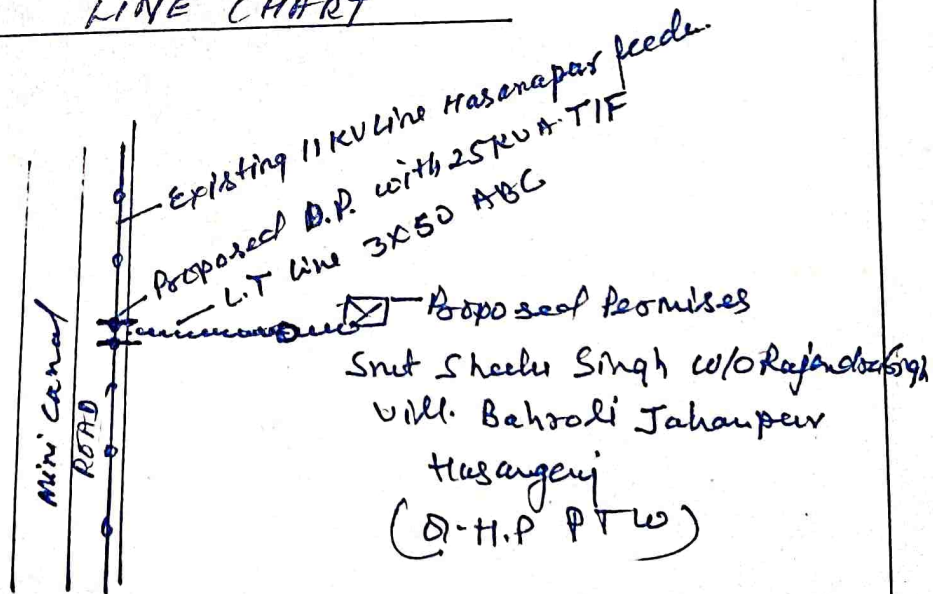 LINE CHART
Existing 11 KV Line Hasanapar feeder
Proposed D.P. with 25 KVA T/F
L.T line 3X50 ABC
Proposed Permises
Smt Sheelu Singh w/o Rajendra Singh
vill. Bahroli Jahanpur
Hasanganj
H.P PTW)
Mini Canal
ROAD